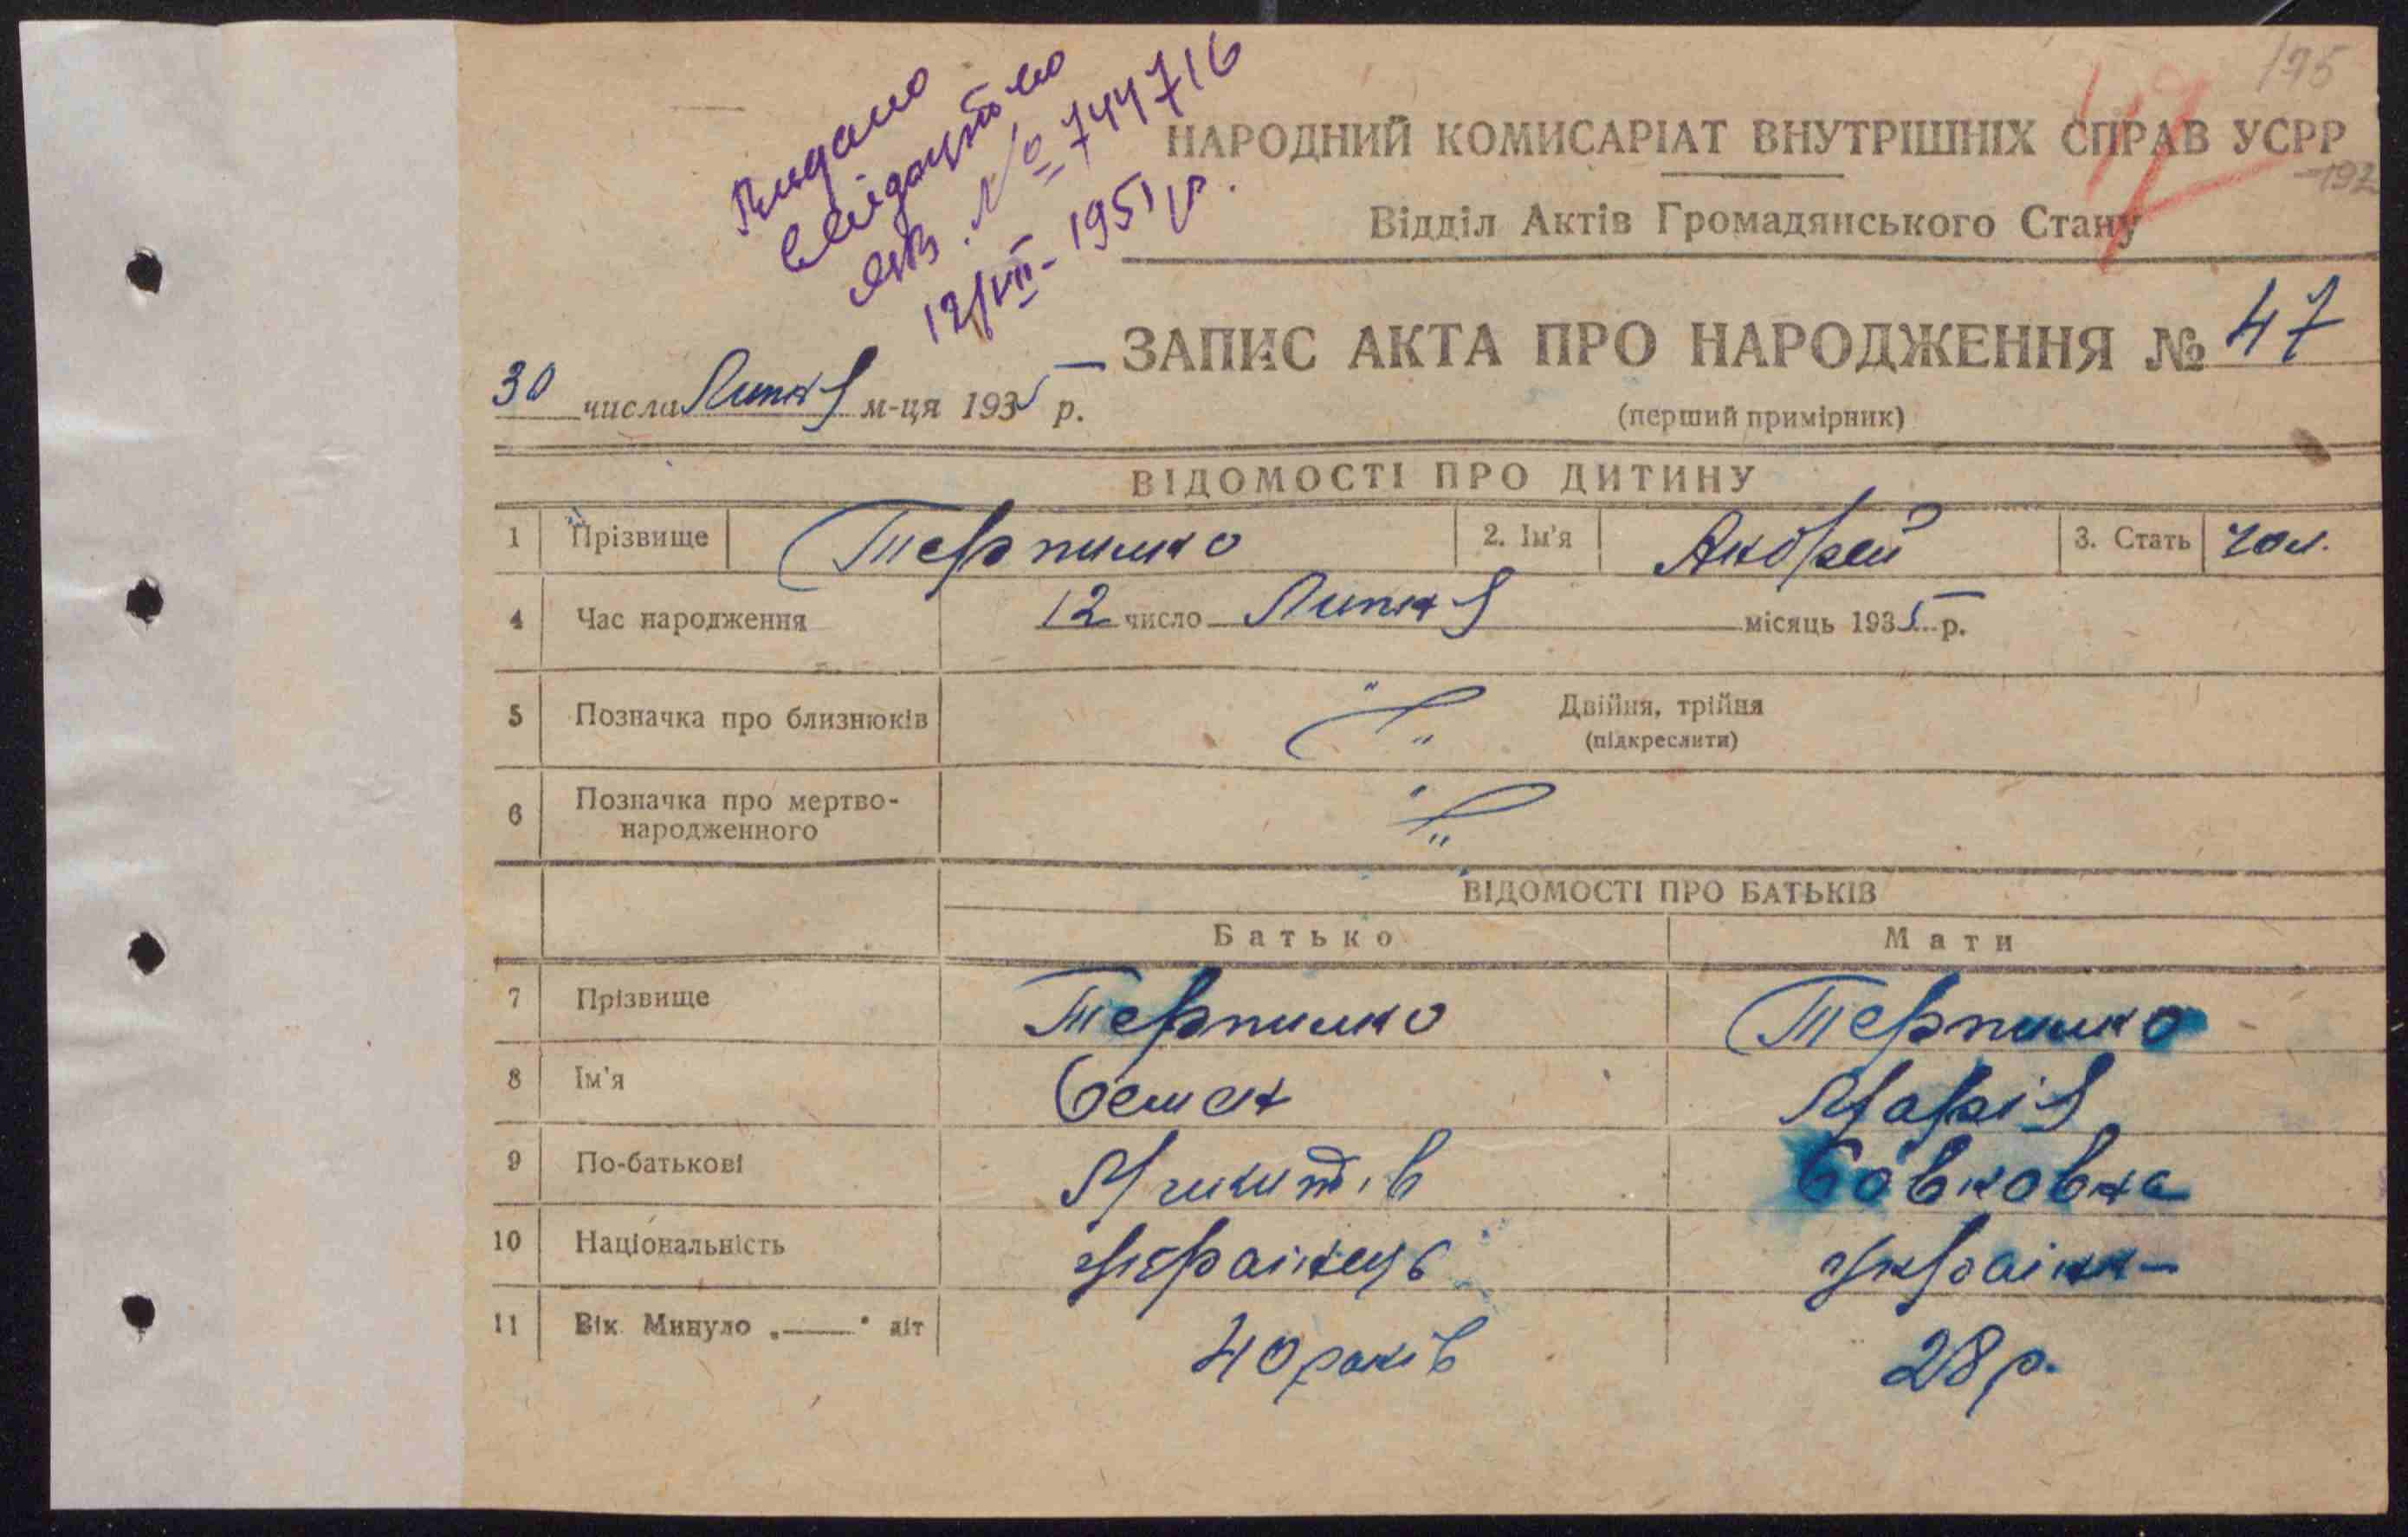 195
Видано
свідоцтво
ЯВ. № 744716
12/VII-1951 р.
НАРОДНИЙ КОМИСАРІАТ ВНУТРІШНІХ СПРАВ УСРР
Відділ Актів Громадянського Стану
ЗАПИС АКТА ПРО НАРОДЖЕННЯ № 47
30 числа Липня м-ця 1935 р.
(перший примірник)
ВІДОМОСТІ ПРО ДИТИНУ
1 Прізвище Терпило 2. Ім'я Андрей 3. Стать чол.
4 Час народження 12 число Липня місяць 1935 р.
5 Позначка про близнюків Двійня, трійня
(підкреслити)
6 Позначка про мертво-
народженного
ВІДОМОСТІ ПРО БАТЬКІВ
Батько Мати
7 Прізвище Терпило Терпило
8 Ім'я Семен Марія
9 По-батькові Микитів Савковна
10 Національність Українець Українка
11 Вік Минуло „——" літ 40 років 28 р.